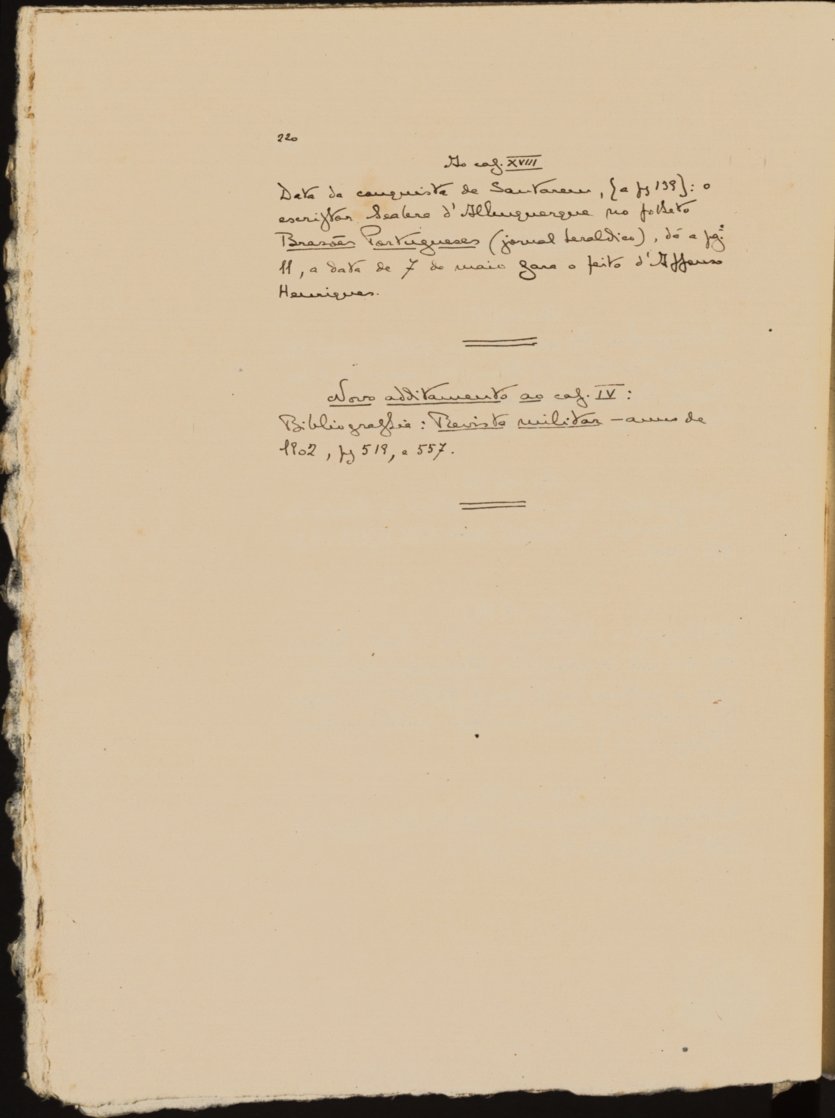 220
Ao cap. XVIII
Data da conquista de Santarem, {a pg 199}: o
escriptor Seabra d'Albuquerque no folheto
Brazões Portugueses (jornal heraldico), dá a pg.
11, a data de 7 de maio para o feito d'Affonso
Henriques.
Novo additamento ao cap. IV:
Bibliographia: Revista militar – anno de
1902, pg 519, e 557.